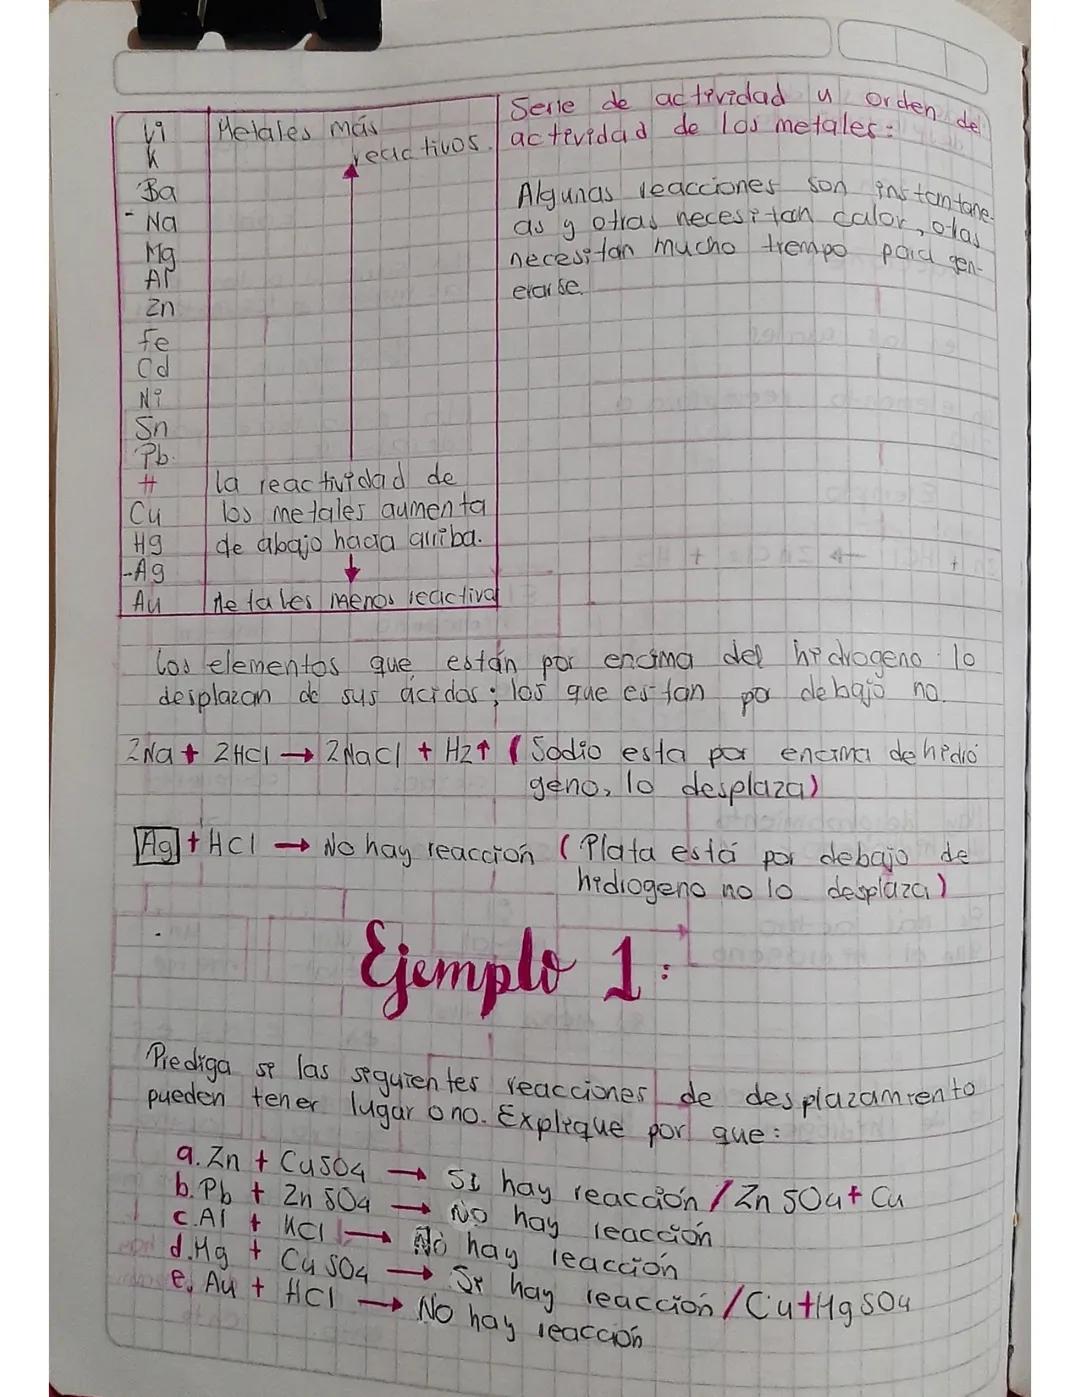 Li
K
Ba
-Na
Mg
Al
Zn
Fe
Cd
Ni
Sn
Pb.
H
Cu
Hg
-Ag
Au
Metales más
reactivos.
la reactividad de
los metales aumenta
de abajo hacia arriba.
Metales menos reactiva
Serie de actividad u orden de
actividad de los metales:
Algunas reacciones son instantane-
as y otras necesitan calor, otas
necesitan mucho tiempo para gen-
erarse.
Los elementos que están por encima del hidrogeno lo
desplazan de sus ácidos; los que estan por debajo no.
2Na + 2HCl → 2NaCl + H2↑ (Sodio esta por encima de hidró
geno, lo desplaza)
Ag + HCl → No hay reacción (Plata está por debajo de
hidrogeno no lo desplaza)
Ejemplo 1:
Prediga si las siguientes reacciones de desplazamiento
pueden tener lugar o no. Explique por que:
a. Zn + CuSO4 → SI hay reacción / ZnSO4 + Cu
b. Pb + ZnSO4 → No hay reacción
c. Al + KCl → No hay reacción
d. Hg + CuSO4 → Si hay reacción / Cu + HgSO4
e. Au + HCl → No hay reacción